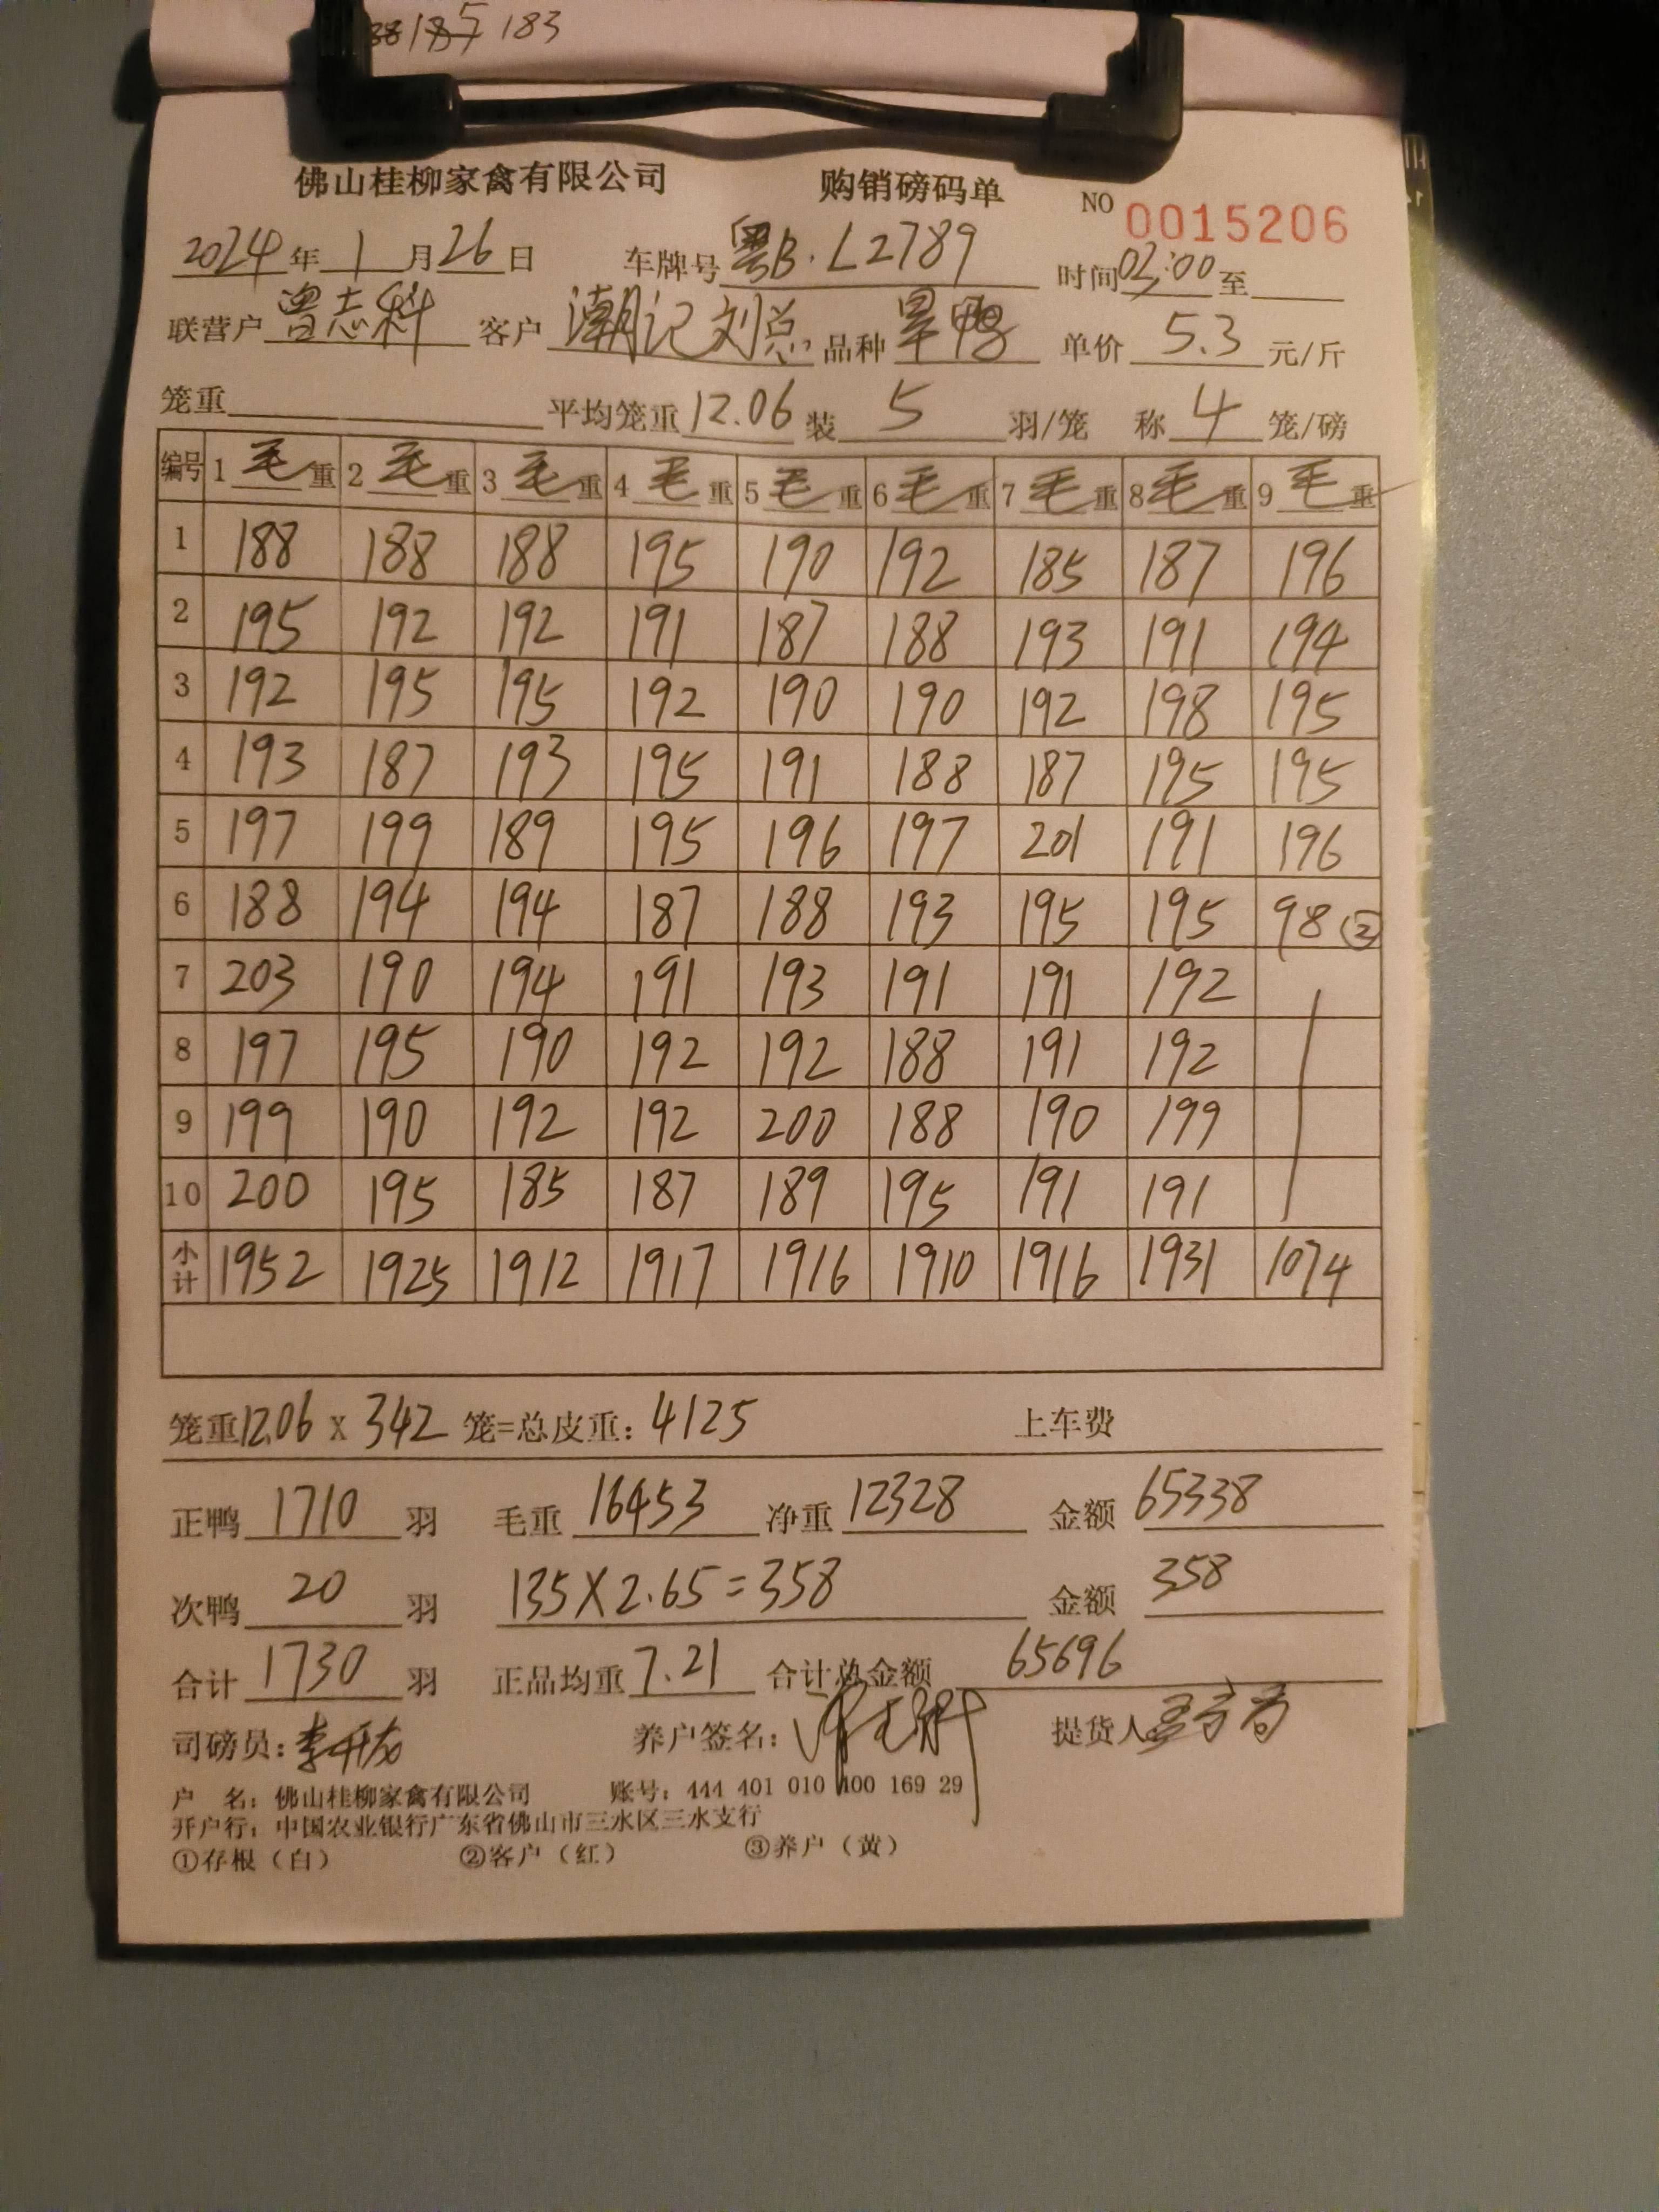 185 183
佛山桂柳家禽有限公司 购销磅码单 NO 0015206
2024年1月26日 车牌号粤B·L2789 时间03:00至
联营户曾志科 客户潮记刘总 品种旱鸭 单价5.3元/斤
笼重 平均笼重12.06 装5羽/笼 称4笼/磅
编号 1毛重 2毛重 3毛重 4毛重 5毛重 6毛重 7毛重 8毛重 9毛重
1 188 188 188 195 190 192 185 187 196
2 195 192 192 191 187 188 193 191 194
3 192 195 195 192 190 190 192 198 195
4 193 187 193 195 191 188 187 195 195
5 197 199 189 195 196 197 201 191 196
6 188 194 194 187 188 193 195 195 98②
7 203 190 194 191 193 191 191 192
8 197 195 190 192 192 188 191 192
9 199 190 192 192 200 188 190 199
10 200 195 185 187 189 195 191 191
小计 1952 1925 1912 1917 1916 1910 1916 1931 1074
笼重12.06 x 342 笼=总皮重：4125 上车费
正鸭1710羽 毛重16453 净重12328 金额65338
次鸭20羽 135X2.65=358 金额358
合计1730羽 正品均重7.21 合计总金额65696
司磅员： 养户签名： 提货人
户 名：佛山桂柳家禽有限公司 账号：444 401 010 400 169 29
开户行：中国农业银行广东省佛山市三水区三水支行
①存根（白） ②客户（红） ③养户（黄）